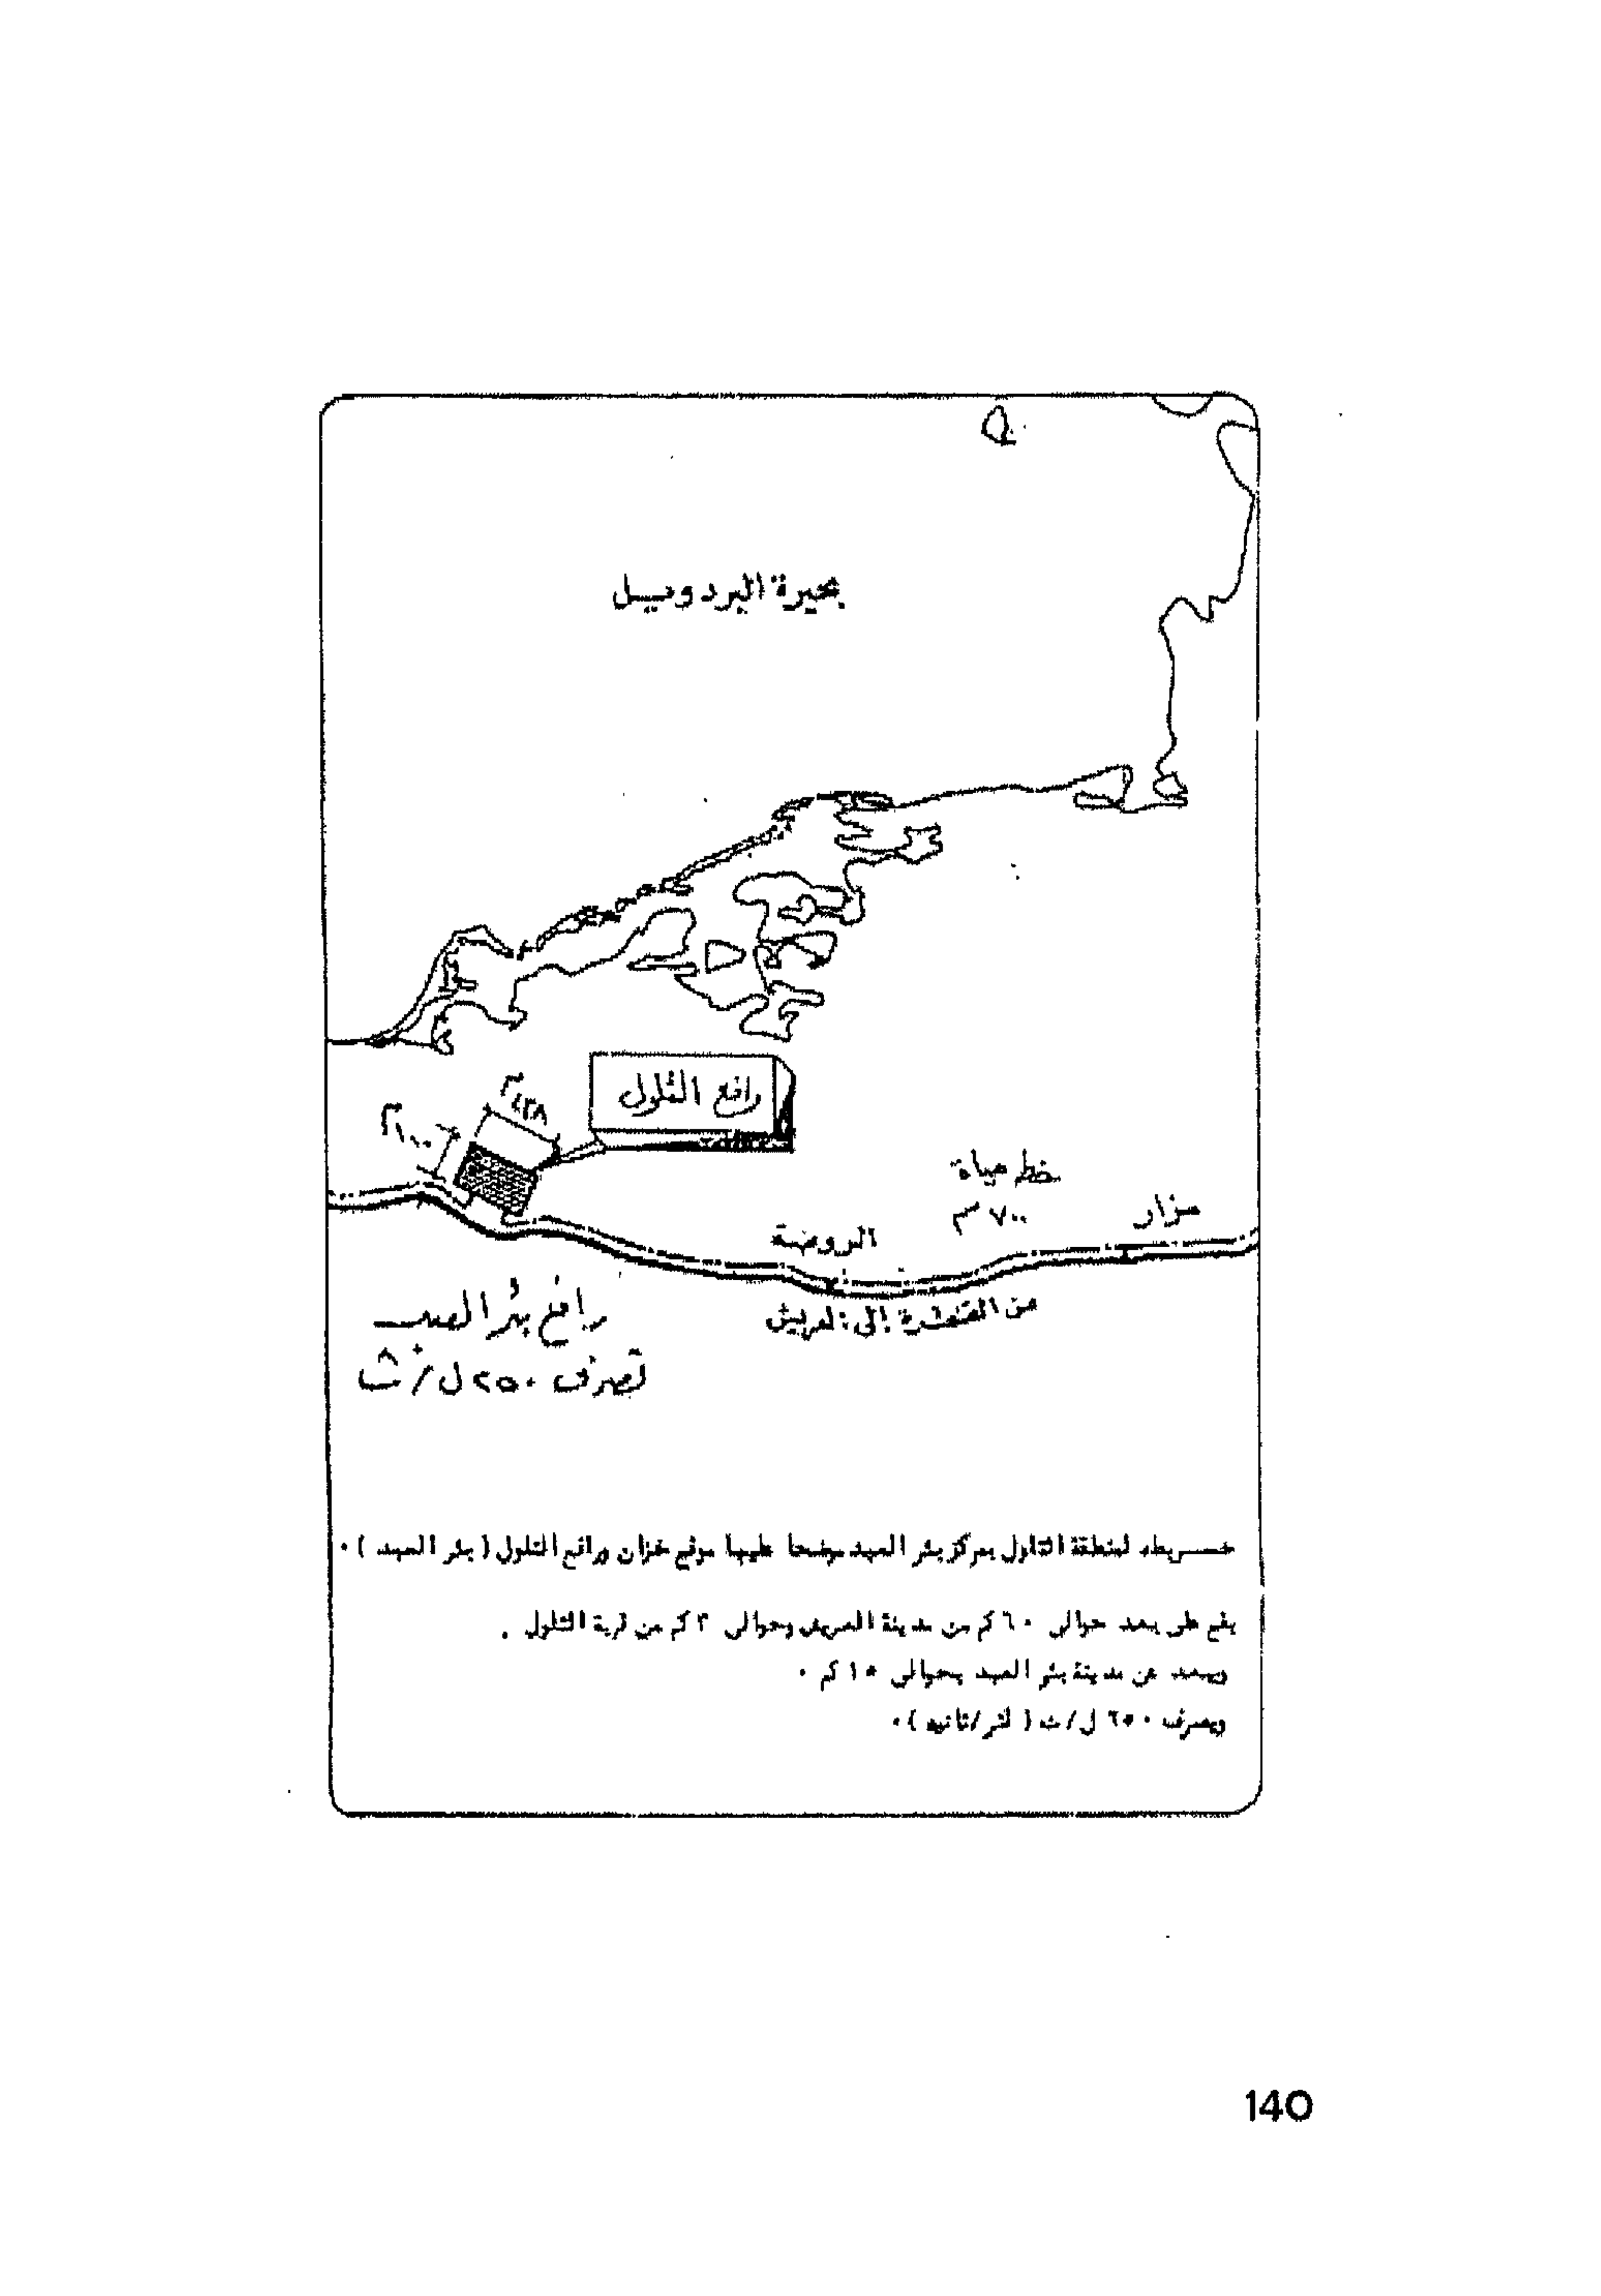 بحيرة البردويل
رافع التلول
١٠٠م
خط مياة
٧٠٠م
مزار
الروضة
من القنطرة إلى العريش
رافع بئر العبد
تصرف ٢٥٠ ل/ث
خريطة لمنطقة التلول بمركز بئر العبد موضحا عليها موقع خزان ورافع التلول (بئر العبد).
يقع على بعد حوالى ٦٠ كم من مدينة العريش وحوالى ٣ كم من قرية التلول.
ويبعد عن مدينة بئر العبد بحوالى ١٥ كم.
ويصرف ٢٥٠ ل/ث (لتر/ثانية).
140